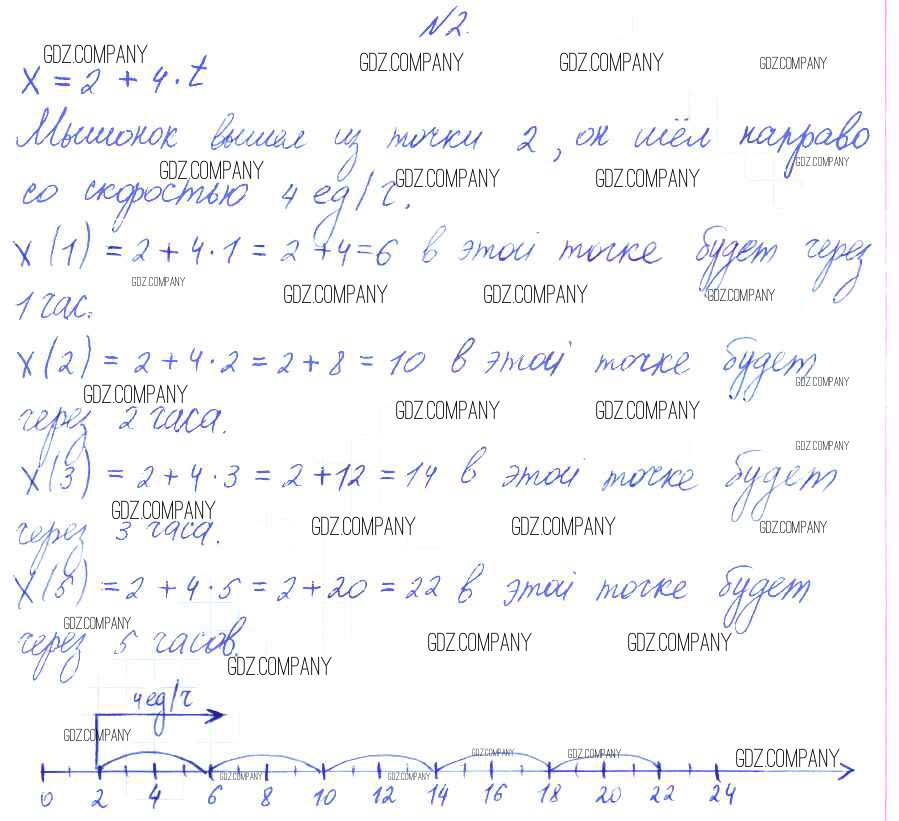 N2.
GDZ.COMPANY GDZ.COMPANY GDZ.COMPANY GDZ.COMPANY
x = 2 + 4 · t
Мышонок вышел из точки 2, он шёл направо
GDZ.COMPANY GDZ.COMPANY GDZ.COMPANY GDZ.COMPANY
со скоростью 4 ед/ч.
x(1) = 2 + 4 · 1 = 2 + 4 = 6 в этой точке будет через
GDZ.COMPANY GDZ.COMPANY GDZ.COMPANY GDZ.COMPANY
1 час.
x(2) = 2 + 4 · 2 = 2 + 8 = 10 в этой точке будет
GDZ.COMPANY GDZ.COMPANY GDZ.COMPANY GDZ.COMPANY
через 2 часа.
GDZ.COMPANY
x(3) = 2 + 4 · 3 = 2 + 12 = 14 в этой точке будет
GDZ.COMPANY GDZ.COMPANY GDZ.COMPANY GDZ.COMPANY
через 3 часа.
x(5) = 2 + 4 · 5 = 2 + 20 = 22 в этой точке будет
GDZ.COMPANY GDZ.COMPANY GDZ.COMPANY
через 5 часов.
GDZ.COMPANY
4 ед/ч
GDZ.COMPANY GDZ.COMPANY GDZ.COMPANY GDZ.COMPANY
GDZ.COMPANY GDZ.COMPANY
0 2 4 6 8 10 12 14 16 18 20 22 24